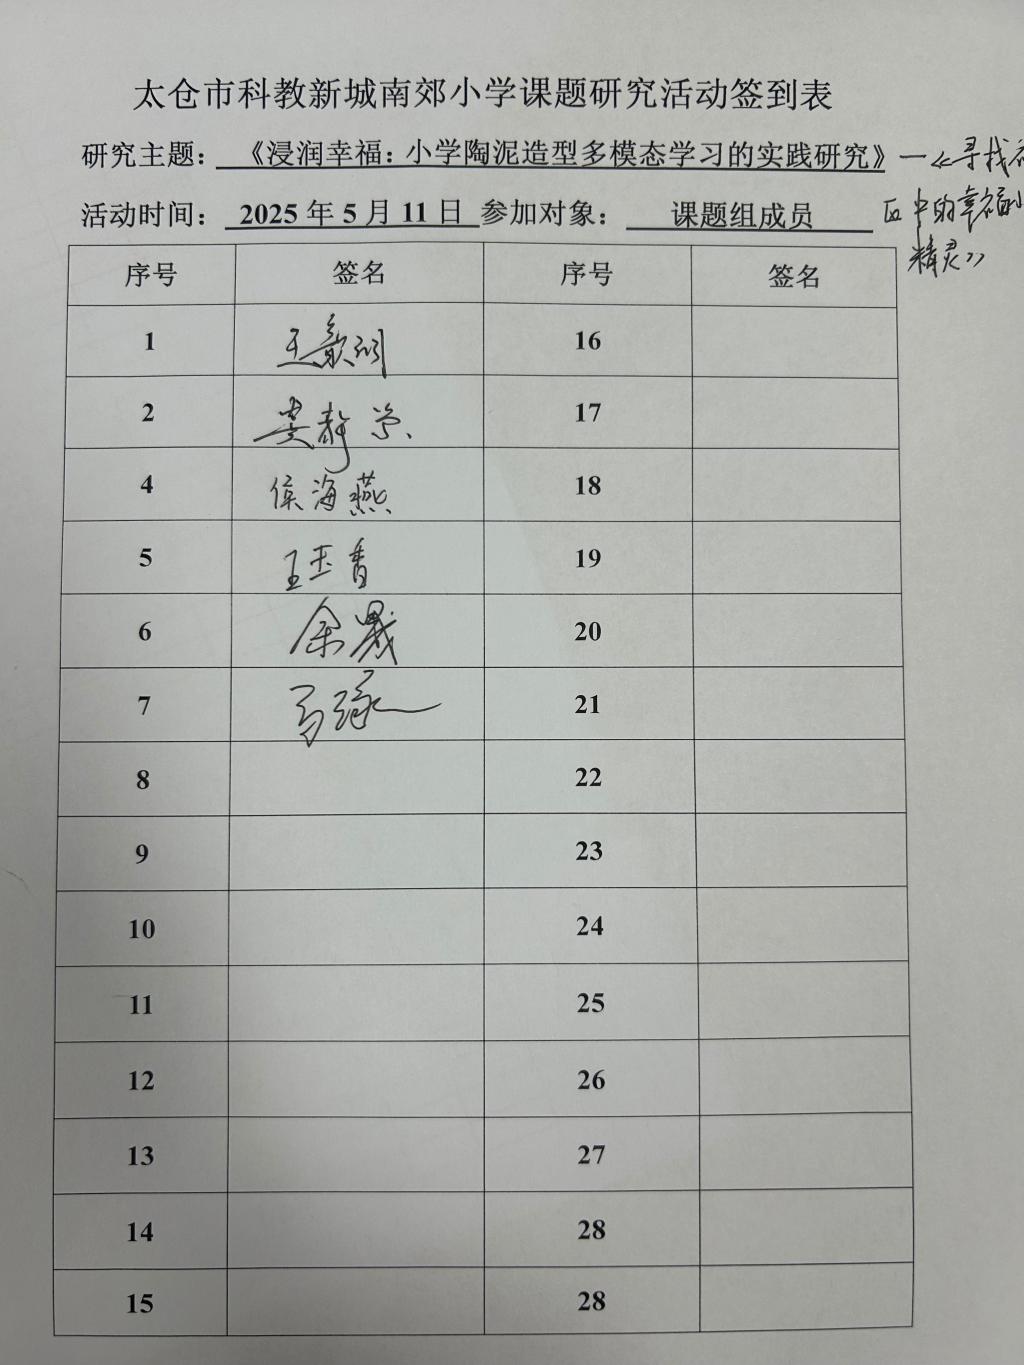 太仓市科教新城南郊小学课题研究活动签到表
研究主题： 《浸润幸福：小学陶泥造型多模态学习的实践研究》—《寻找社
活动时间： 2025 年 5 月 11 日 参加对象： 课题组成员 区中的幸福小
精灵》
序号 签名 序号 签名
1 王 16
2 龚静 17
4 侯海燕 18
5 王玉香 19
6 余晟 20
7 马 21
8 22
9 23
10 24
11 25
12 26
13 27
14 28
15 28